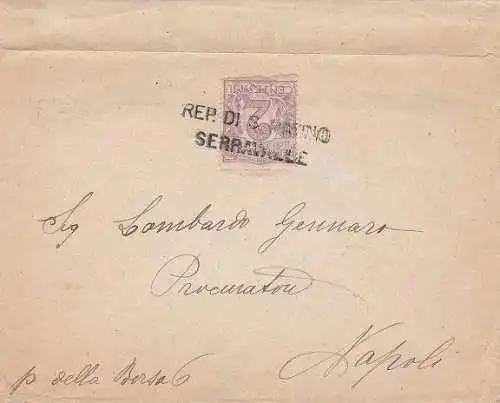 CENTESIMI
2
REP. DI S. MARINO
SERRAVALLE
Sig Lombardo Gennaro
Procuratore
Napoli
p della Borsa 6